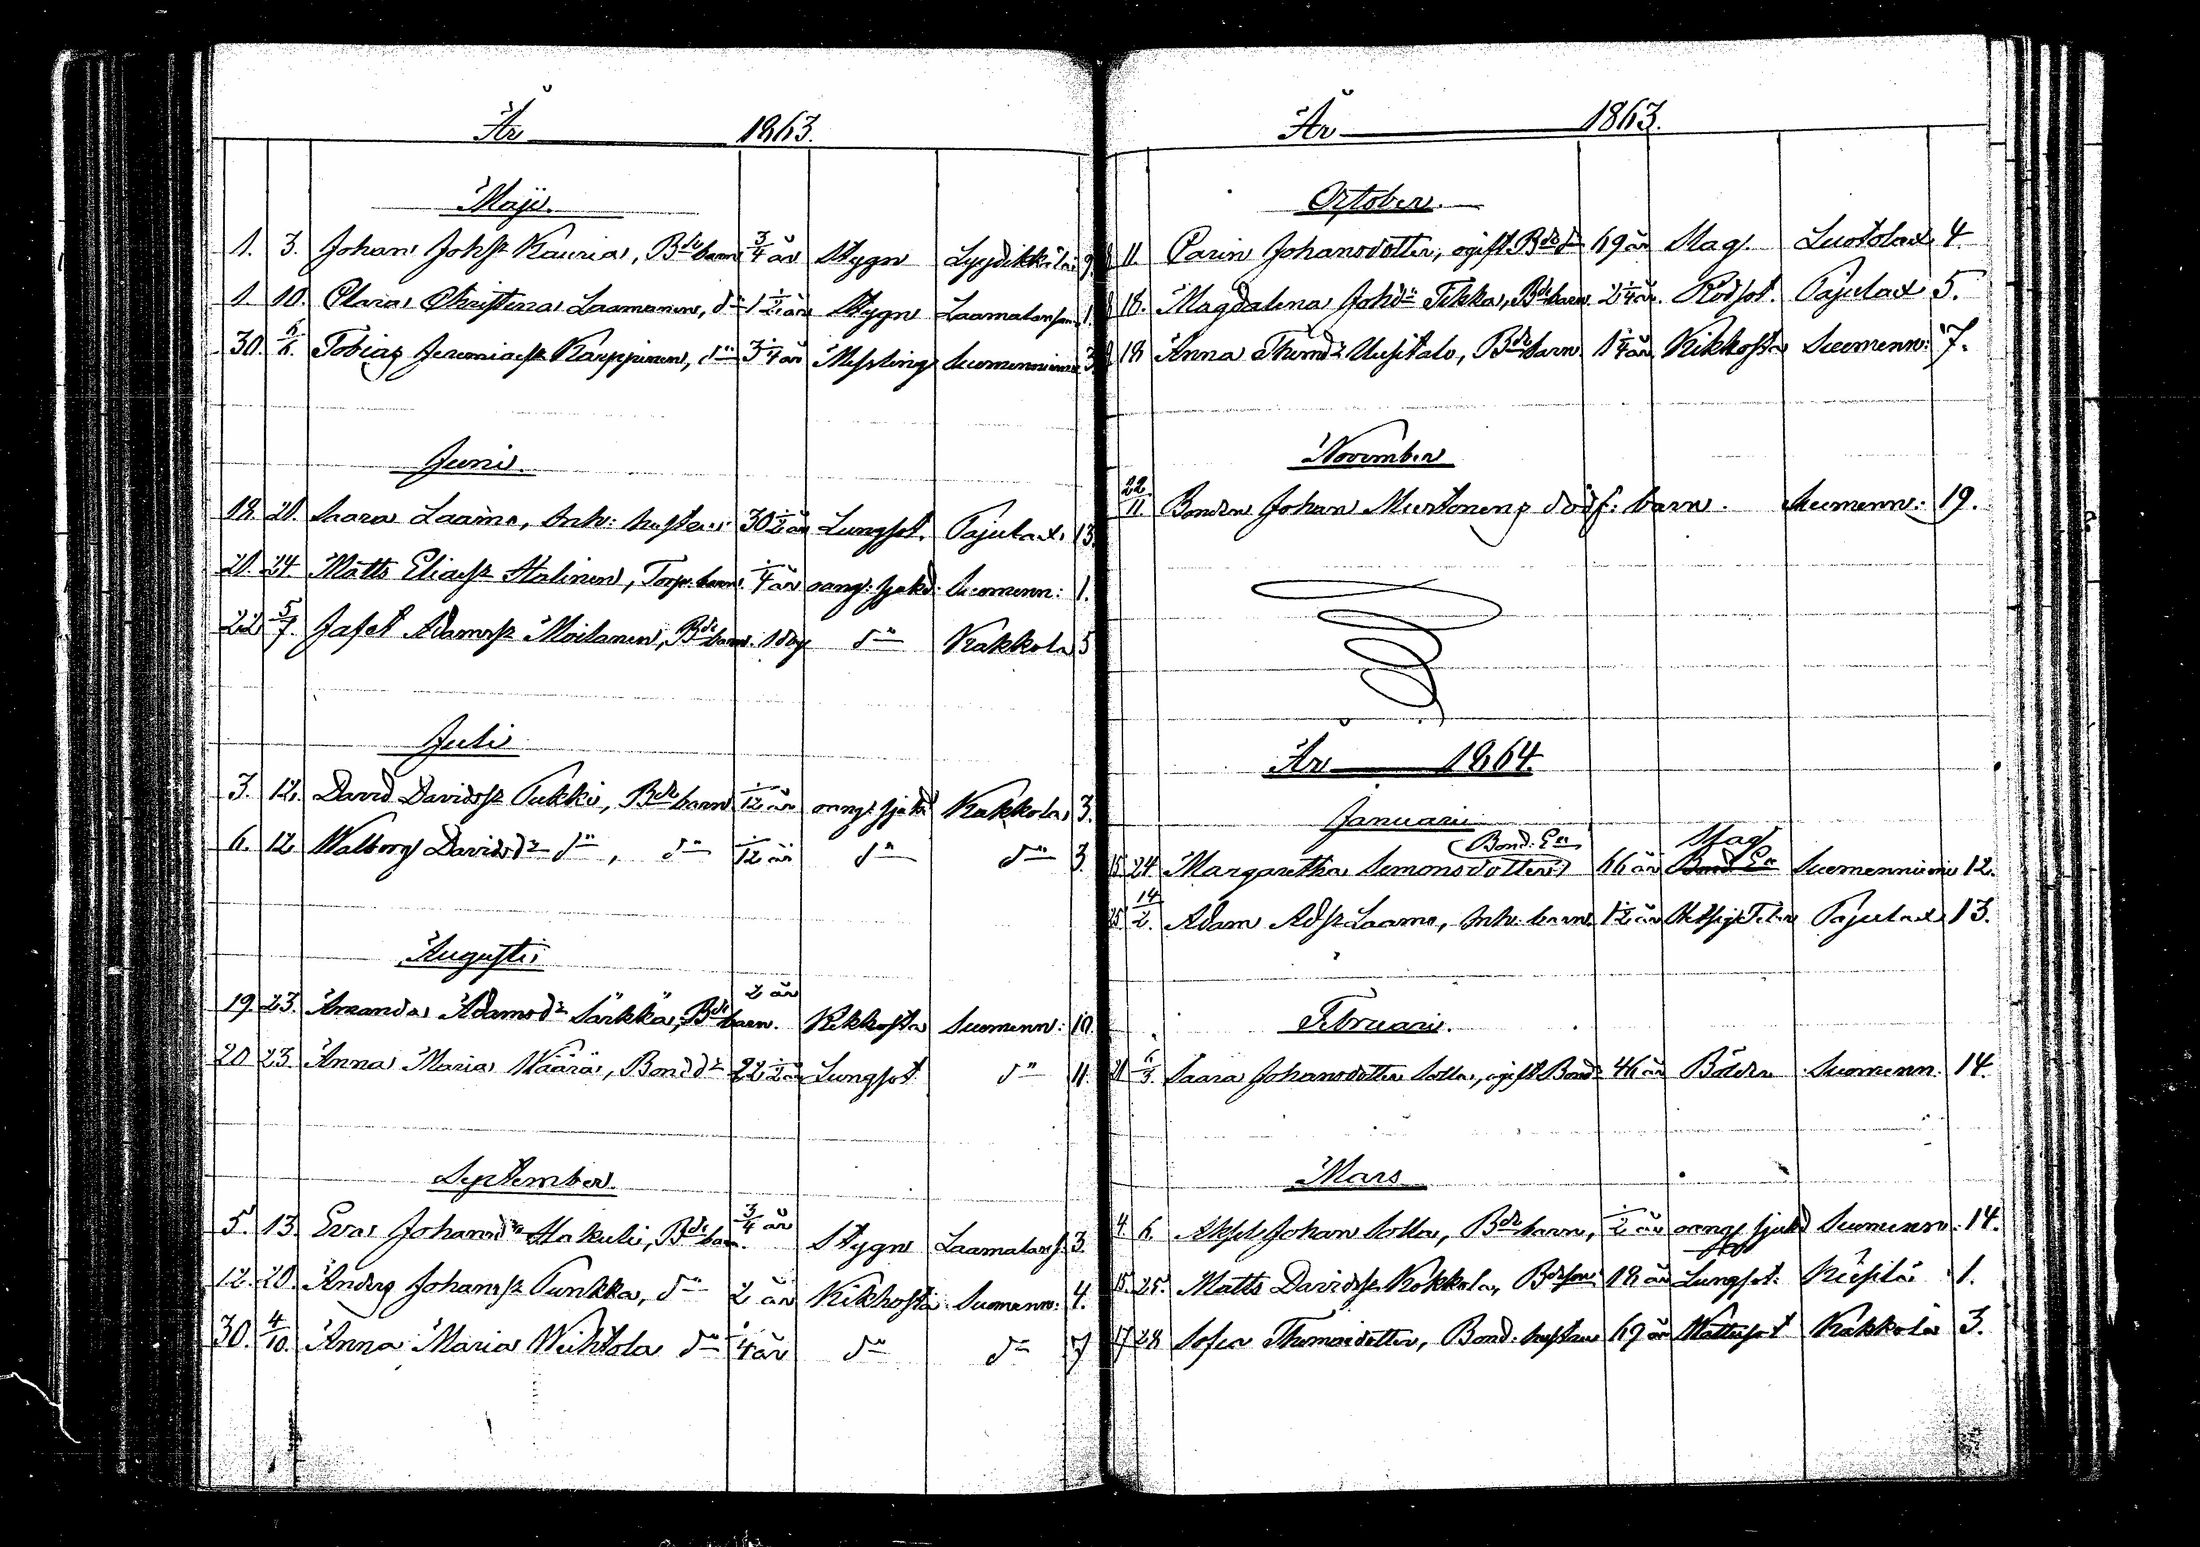 År 1863.
Maji.
1. 3. Johan Johss Kauria, Bde barn 3/4 år Stygn Lyydikkälä 9
1 10. Clara Christina Laamanen, do 1 1/2 år Stygn Laamalans. 1
30. Tobias Jeremiaess Karppinen, do 3 1/4 år Messling Suomenniemi 3
Juni.
18. 21. Saara Laamo, Inh: hustru 30 1/2 år Lungsot. Pajulax. 13.
21. 24. Matts Eliaess Stalinen, Torp. barn 1/4 år oang: sjukd: Suomenn: 1.
22. 5/7. Jafet Adamss Moilanen, Bde barn. 1 dag do Kakkola 5
Juli
3. 12. David Davidss Pukki, Bde barn 1/12 år oang: sjukd Kakkola 3.
6. 12 Walborg Davidsdr do, do 1/12 år do do 3.
Augusti
19. 23. Amanda Adamsdr Särkkä, Bde barn. 2 år Kikhosta Suomenn: 10.
20 23. Anna Maria Määrä, Bonddr 22 1/2 år Lungsot do 11.
September.
5. 13. Eva Johansdr Hakuli, Bde barn. 3/4 år Stygn Laamalans. 3.
12. 20. Anders Johanss Punkka, do 2 år Kikhosta Suomenn: 4.
30. 4/10. Anna Maria Weihtola do 1/4 år do do 7
År 1863.
October.
11. Carin Johansdotter, ogift Bde dr 69 år Slag. Luotolax 4.
18. Magdalena Johdr Tikka, Bde barn 2 1/4 år. Rödsot. Pajulax 5.
18 Anna Thomdr Uusitalo, Bde barn 1 1/4 år Kikhosta Suomenn: 7.
November
22/11 Bonden Johan Murtonens dödf: barn. Suomenn: 19.
År 1864.
Januari
Bond. Ea Slag
15 24. Margaretha Simonsdotter 66 år Bond Ea Suomenniemi 12.
14/2. Adam Adss Laamo, Inh: barn 1 1/2 år Pajulax 13.
Februari.
21 6/3. Saara Johansdotter Solla, ogift Bond 46 år Bölder Suomenn. 14.
Mars
4. 6. Axel Johan Solla, Bde barn, 1/2 år oang. sjukd Suomenn. 14.
15. 25. Matts Davidss Kokkola, Bdeson 18 år Lungsot: Kiesilä 1.
17 28 Sofia Thomasdotter, Bond. hustru 69 år Wattusot Kakkola 3.